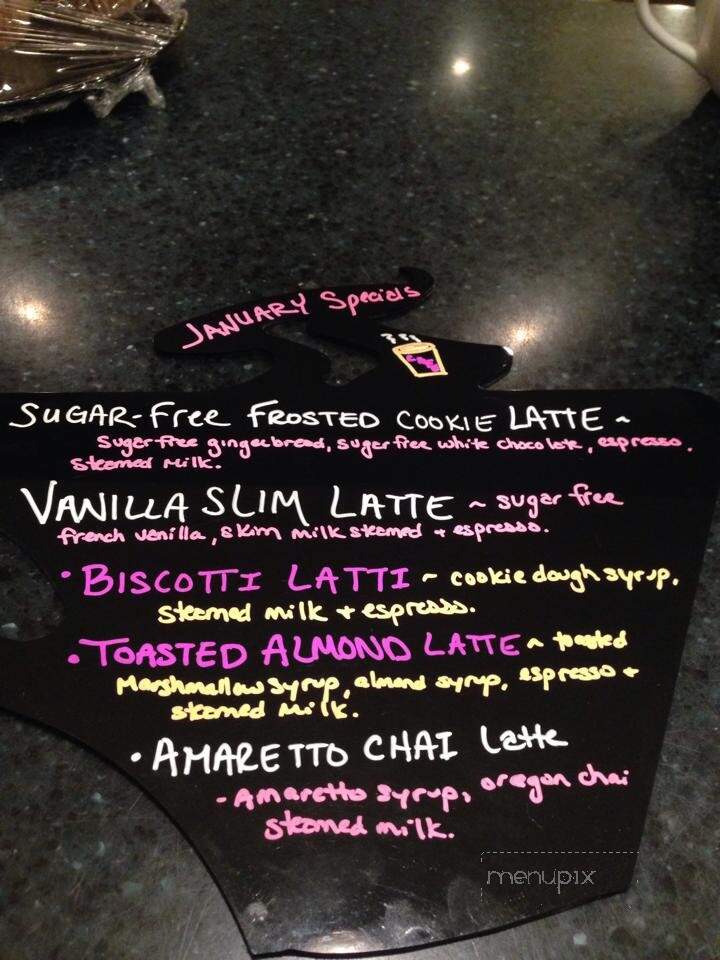 JANUARY Specials
SUGAR-Free FROSTED COOKIE LATTE ~
Sugar-free gingerbread, sugar free white chocolate, espresso,
steamed milk.
VANILLA SLIM LATTE ~ sugar free
french vanilla, skim milk steamed + espresso.
• BISCOTTI LATTI ~ cookie dough syrup,
steamed milk + espresso.
• TOASTED ALMOND LATTE ~ toasted
Marshmallow syrup, almond syrup, espresso +
steamed milk.
• AMARETTO CHAI Latte
- Amaretto syrup, oregon chai
steamed milk.
menupix